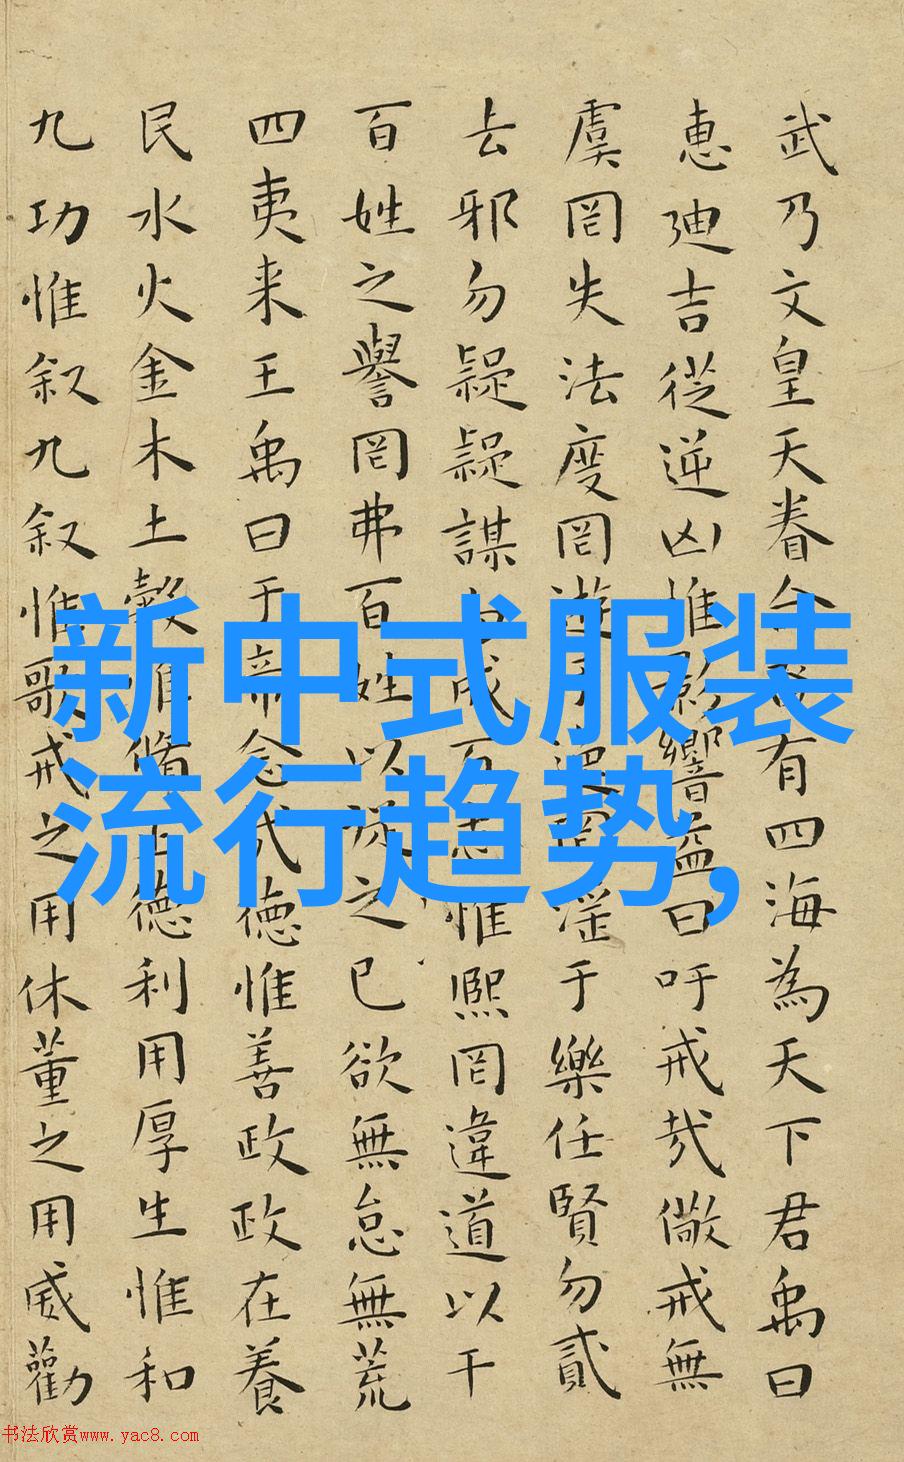 武乃文皇天眷命奄有四海為天下君禹曰
惠迪吉從逆凶惟影響益曰吁戒哉儆戒無
虞罔失法度罔遊于逸罔淫于樂任賢勿貳
去邪勿疑疑謀勿成百志惟熙罔違道以干
百姓之譽罔弗百姓以從之己欲無怠無荒
四夷来王禹曰于帝念哉德惟善政政在養
民水火金木土穀惟脩正德利用厚生惟和
九功惟叙九叙惟歌戒之用休董之用威勸
新中式服装
流行趋势,
书法欣赏www.yac8.com